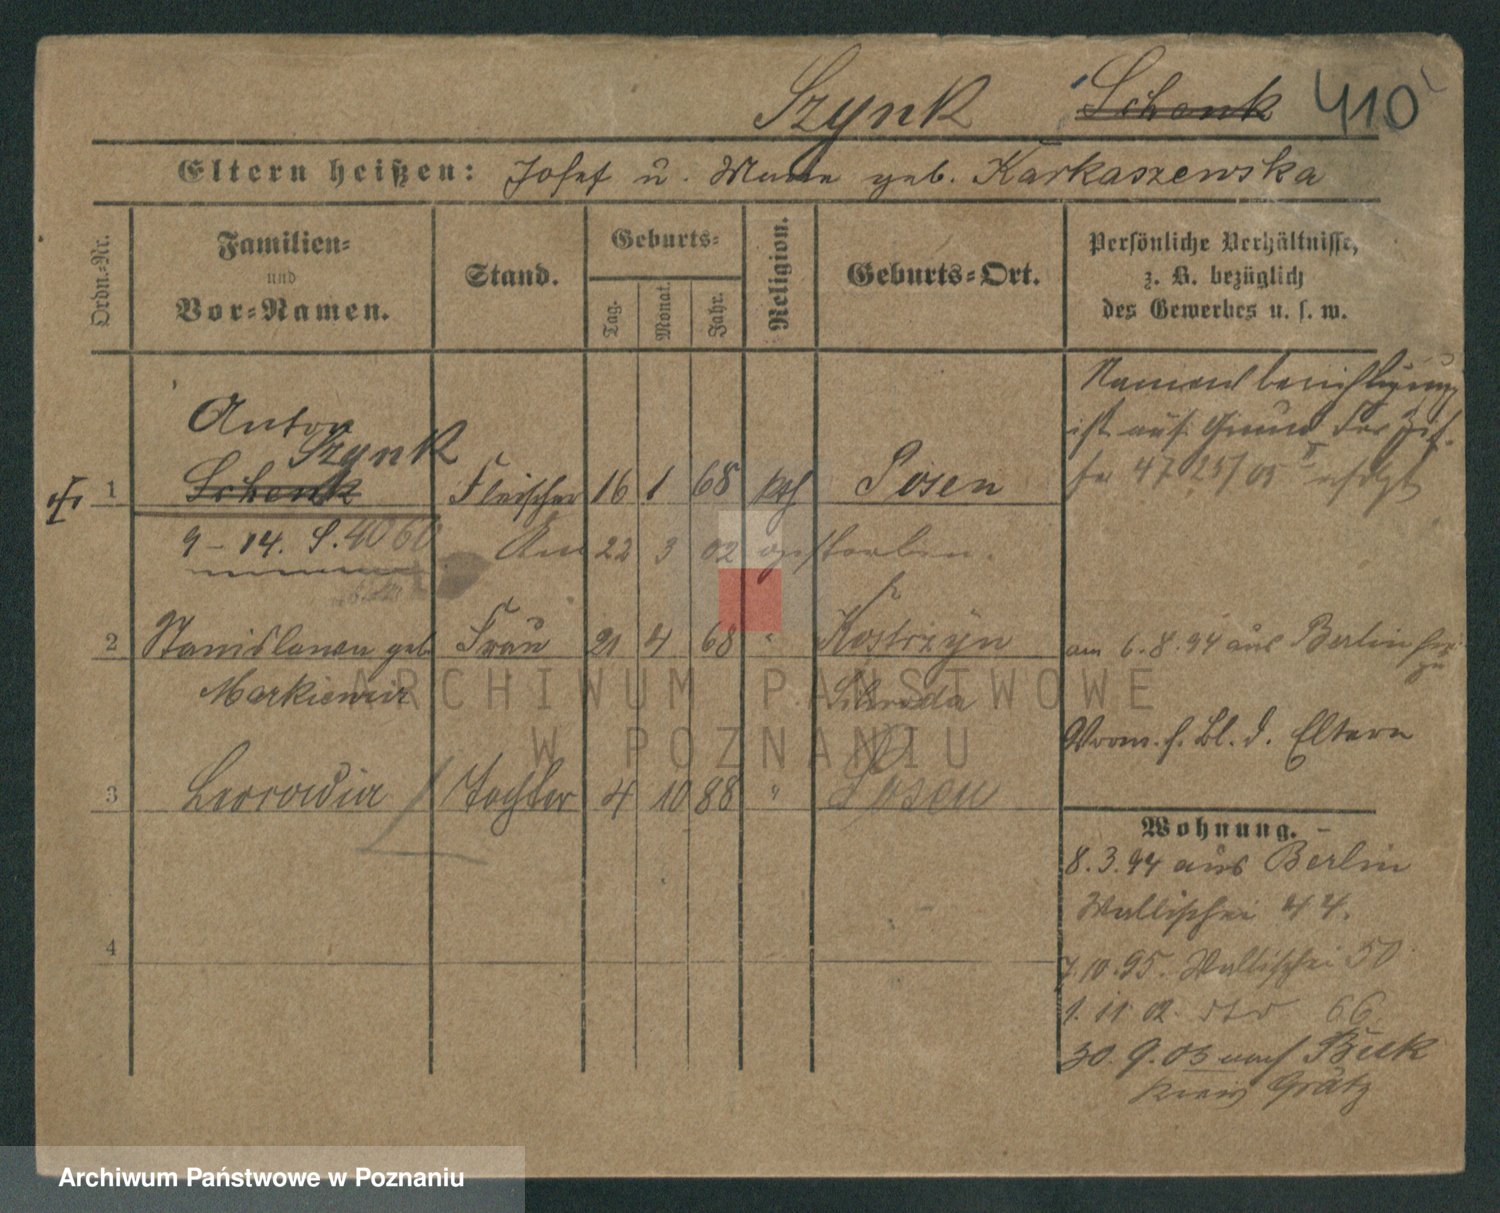 Szynk Schenk 410
Eltern heißen: Josef u. Marie geb. Karkaszewska
Ordn.-Nr.
Familien-
und
Vor-Namen.
Stand.
Geburts-
Tag.
Monat.
Jahr.
Religion.
Geburts-Ort.
Persönliche Verhältnisse,
z. B. bezüglich
des Gewerbes u. s. w.
Namensberichtigung
ist auf Grund der
4725/05 erfolgt
Anton
Szynk
1 Schenk Fleischer 16 1 68 kth Posen
9 – 14. S. 4060
Am 22 3 02 gestorben.
2 Stanislawa geb. Frau 21 4 68 " Kostrzyn
Markiewicz Schroda
am 6.8.94 aus Berlin
zu
Vorm. s. Bl. d. Eltern
3 Leocadia Tochter 4 10 88 " Posen
4
Wohnung.
8.3.94 aus Berlin
Wallischei 44.
7.10.95. Wallischei 50
1. 11. 02. dto 66
30. 9. 03 nach Buk
Kreis Grätz
ARCHIWUM PAŃSTWOWE
W POZNANIU
Archiwum Państwowe w Poznaniu